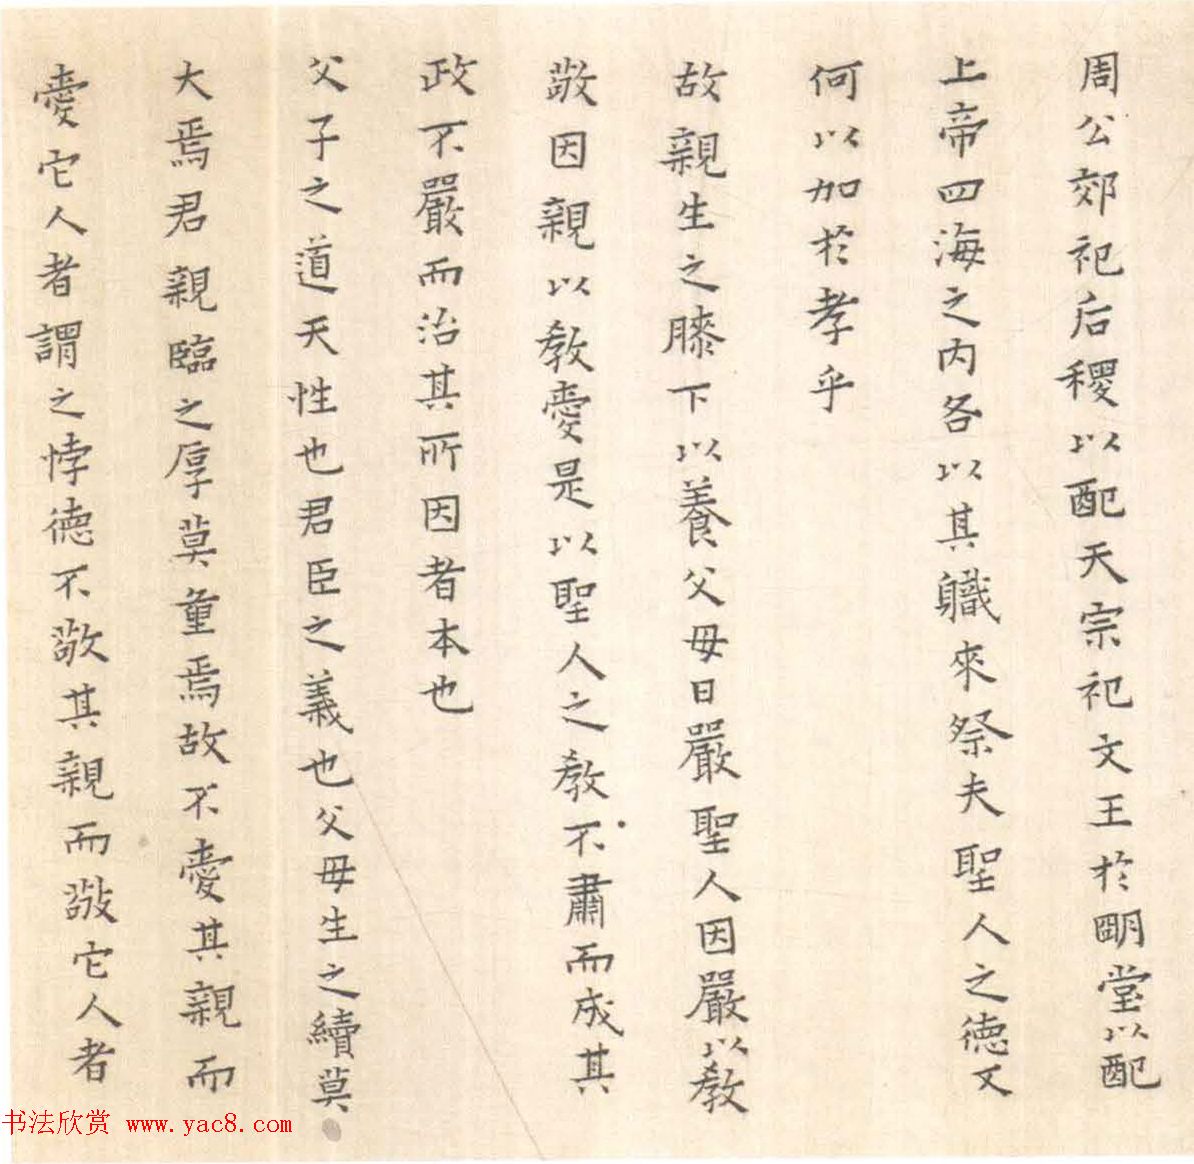 周公郊祀后稷以配天宗祀文王於明堂以配
上帝四海之内各以其職來祭夫聖人之德又
何以加於孝乎
故親生之膝下以養父母日嚴聖人因嚴以教
敬因親以教愛是以聖人之教不肅而成其
政不嚴而治其所因者本也
父子之道天性也君臣之義也父母生之續莫
大焉君親臨之厚莫重焉故不愛其親而
愛它人者謂之悖德不敬其親而敬它人者
书法欣赏 www.yac8.com